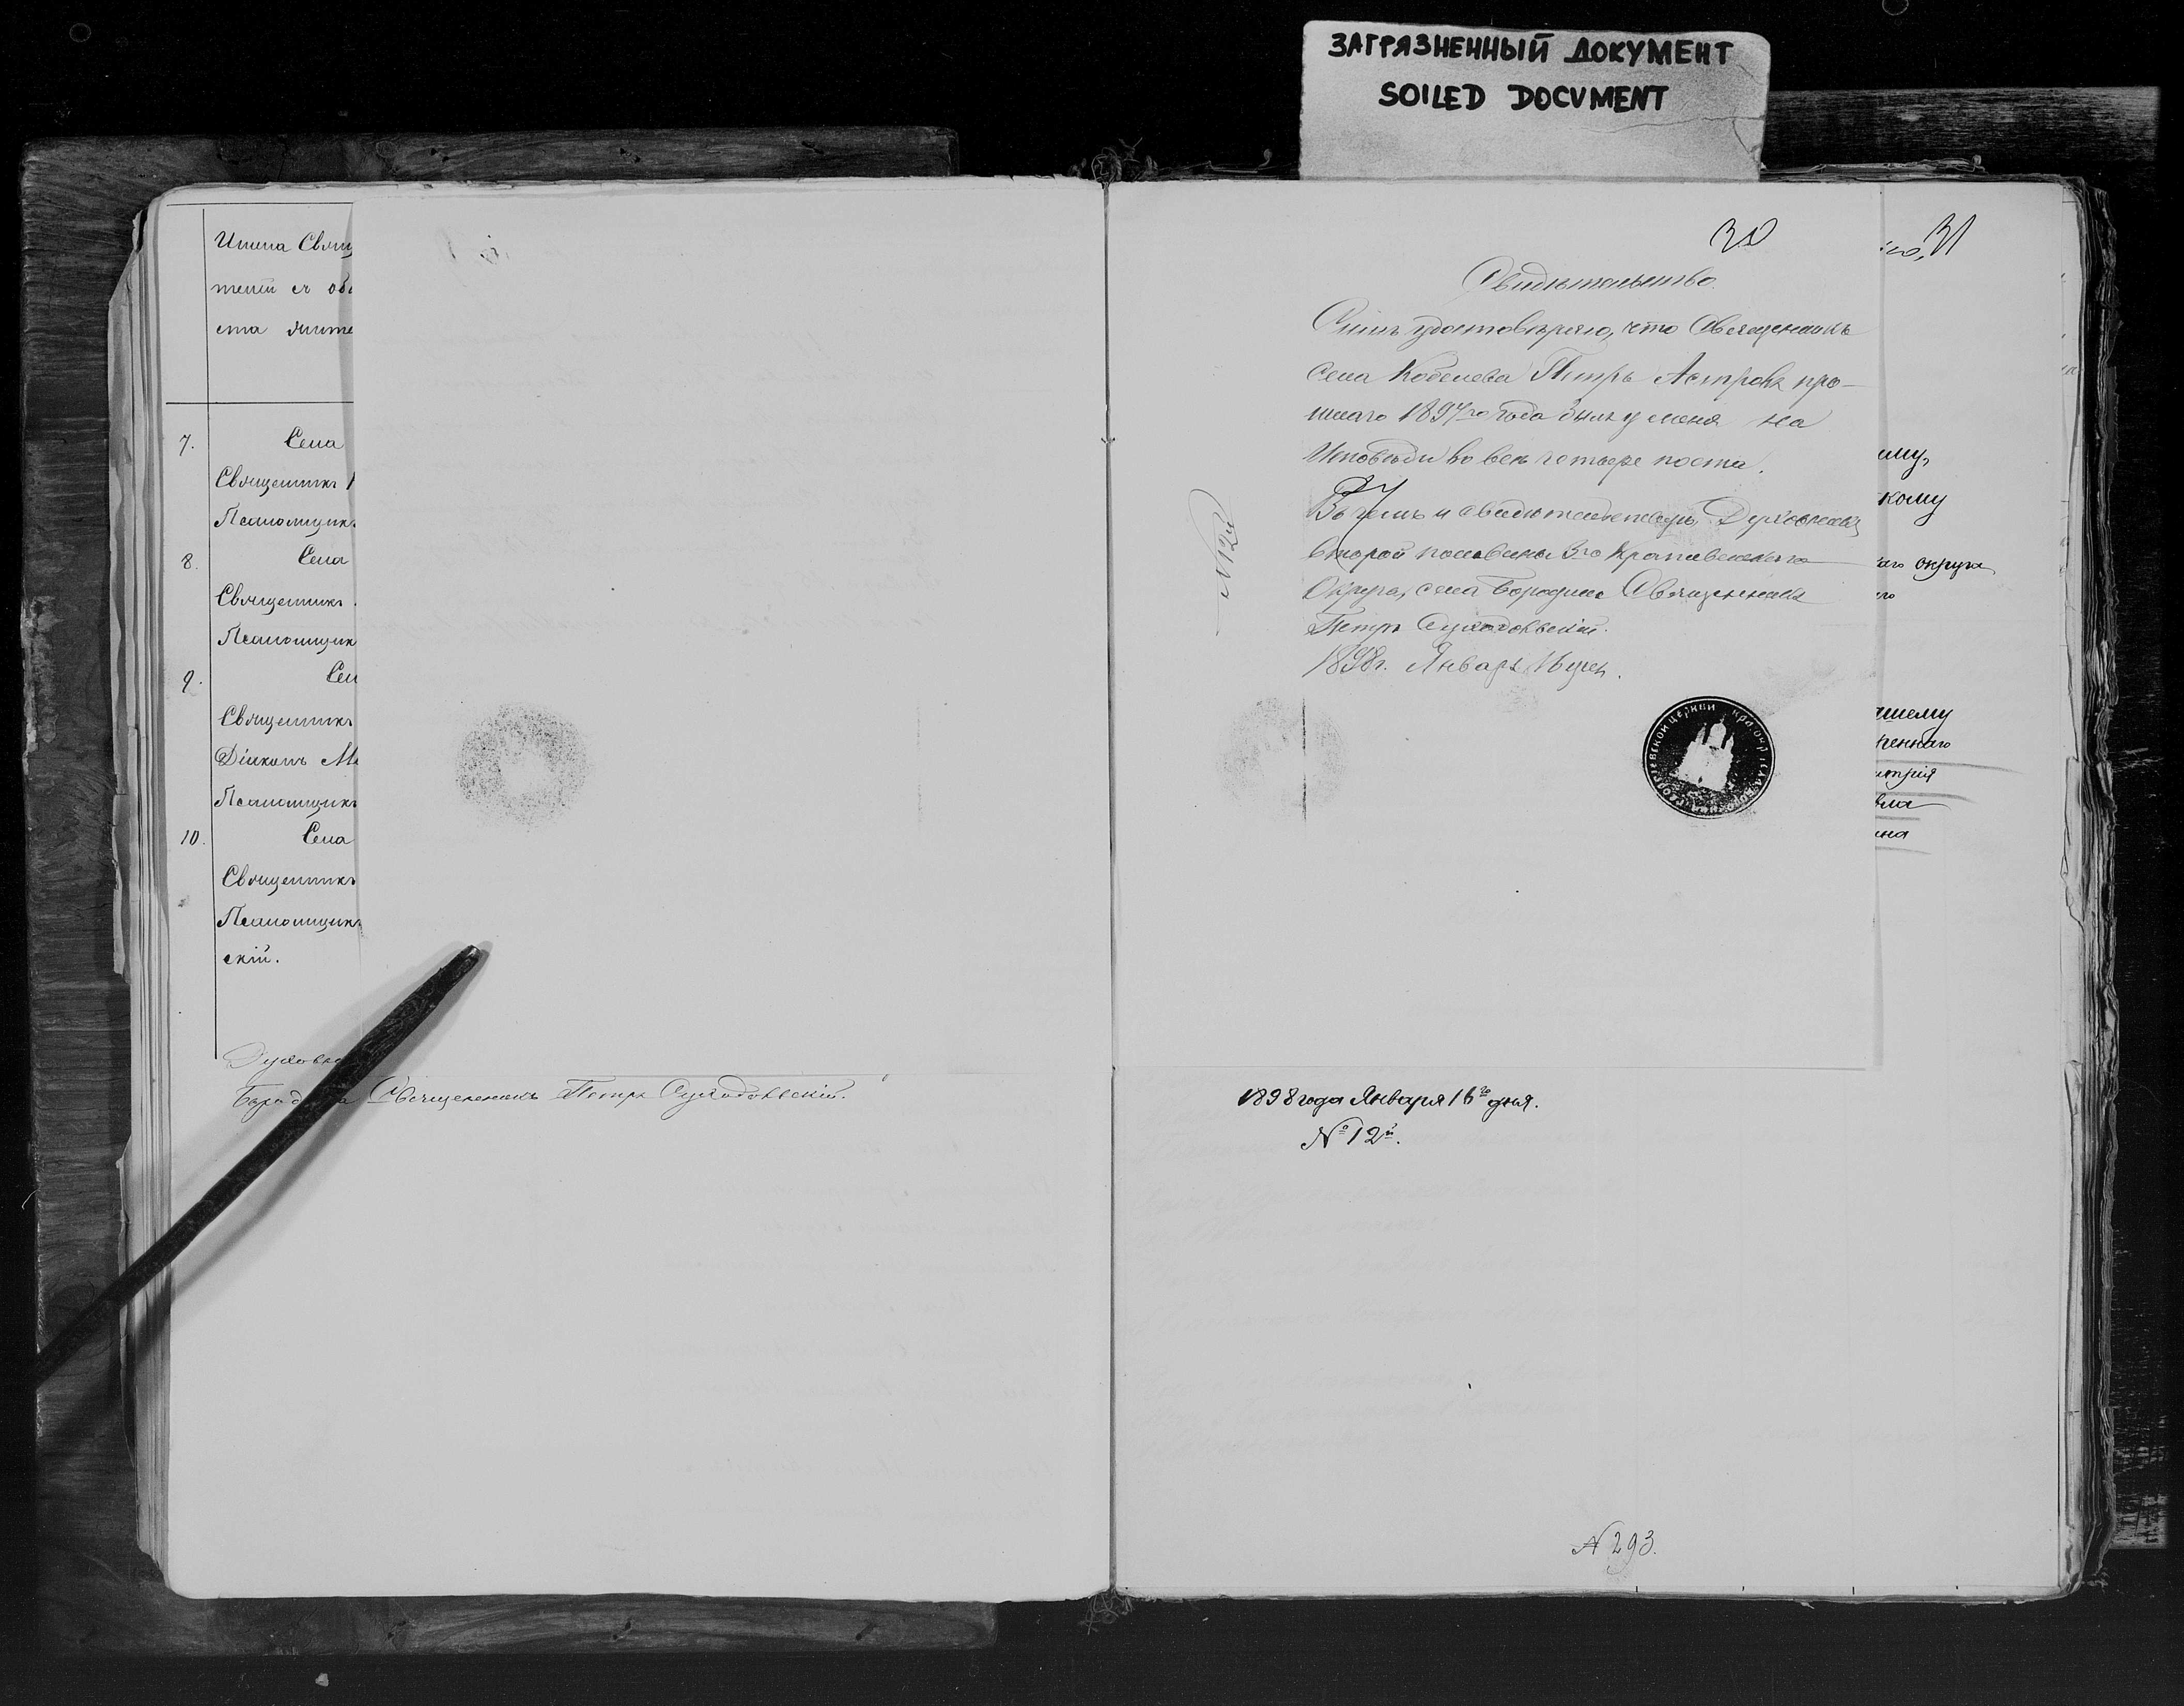 ЗАГРЯЗНЕННЫЙ ДОКУМЕНТ
SOILED DOCUMENT
Имена Свящ
телей съ обо
ста жите
7. Села
Священникъ
Псаломщикъ
8. Села
Священникъ
Псаломщик
9. Сел
Священникъ
Діаконъ Ми
Псаломщикъ
10. Села
Священникъ
Псаломщикъ
скій.
Духовн
Бород Священникъ Петръ Суходольскій.
30
Свидѣтельство.
Симъ удостовѣряю, что Священникъ
села Кобелева Петръ Астровъ про-
шлаго 1897го года былъ у меня на
Исповѣди во всѣ четыре поста.
Въ чемъ и свидѣтельствую Духовникъ
второй половины 3го Крапивенскаго
Округа, села Бородина Священникъ
Петръ Суходольскій.
1898г. Январь 16 дня.
№12й
31
ому,
кому
аго округа
го
ашему
ченнаго
итрія
вла
ина
1898 года Января 16го дня.
№12й.
№293.